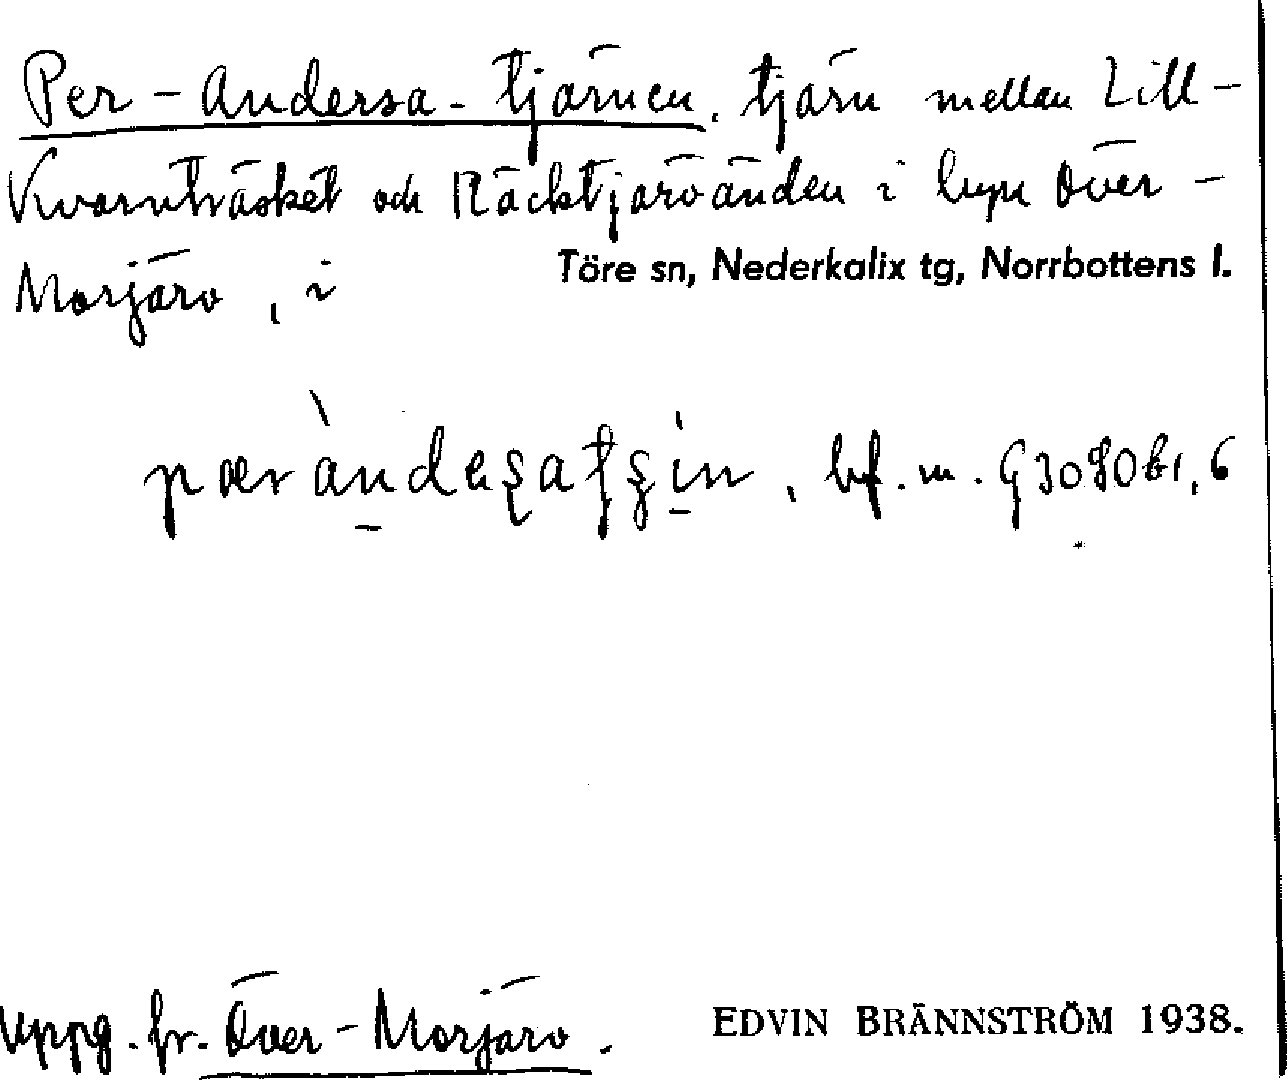 Per-Andersa-tjärnen, tjärn mellan Lill-
Kvarnträsket och Räcktjärvänden i byn Över-
Morjärv, i
Töre sn, Nederkalix tg, Norrbottens l.
pæràndeʂatʂin, bf. m.
Uppg. fr. Över-Morjärv.
EDVIN BRÄNNSTRÖM 1938.